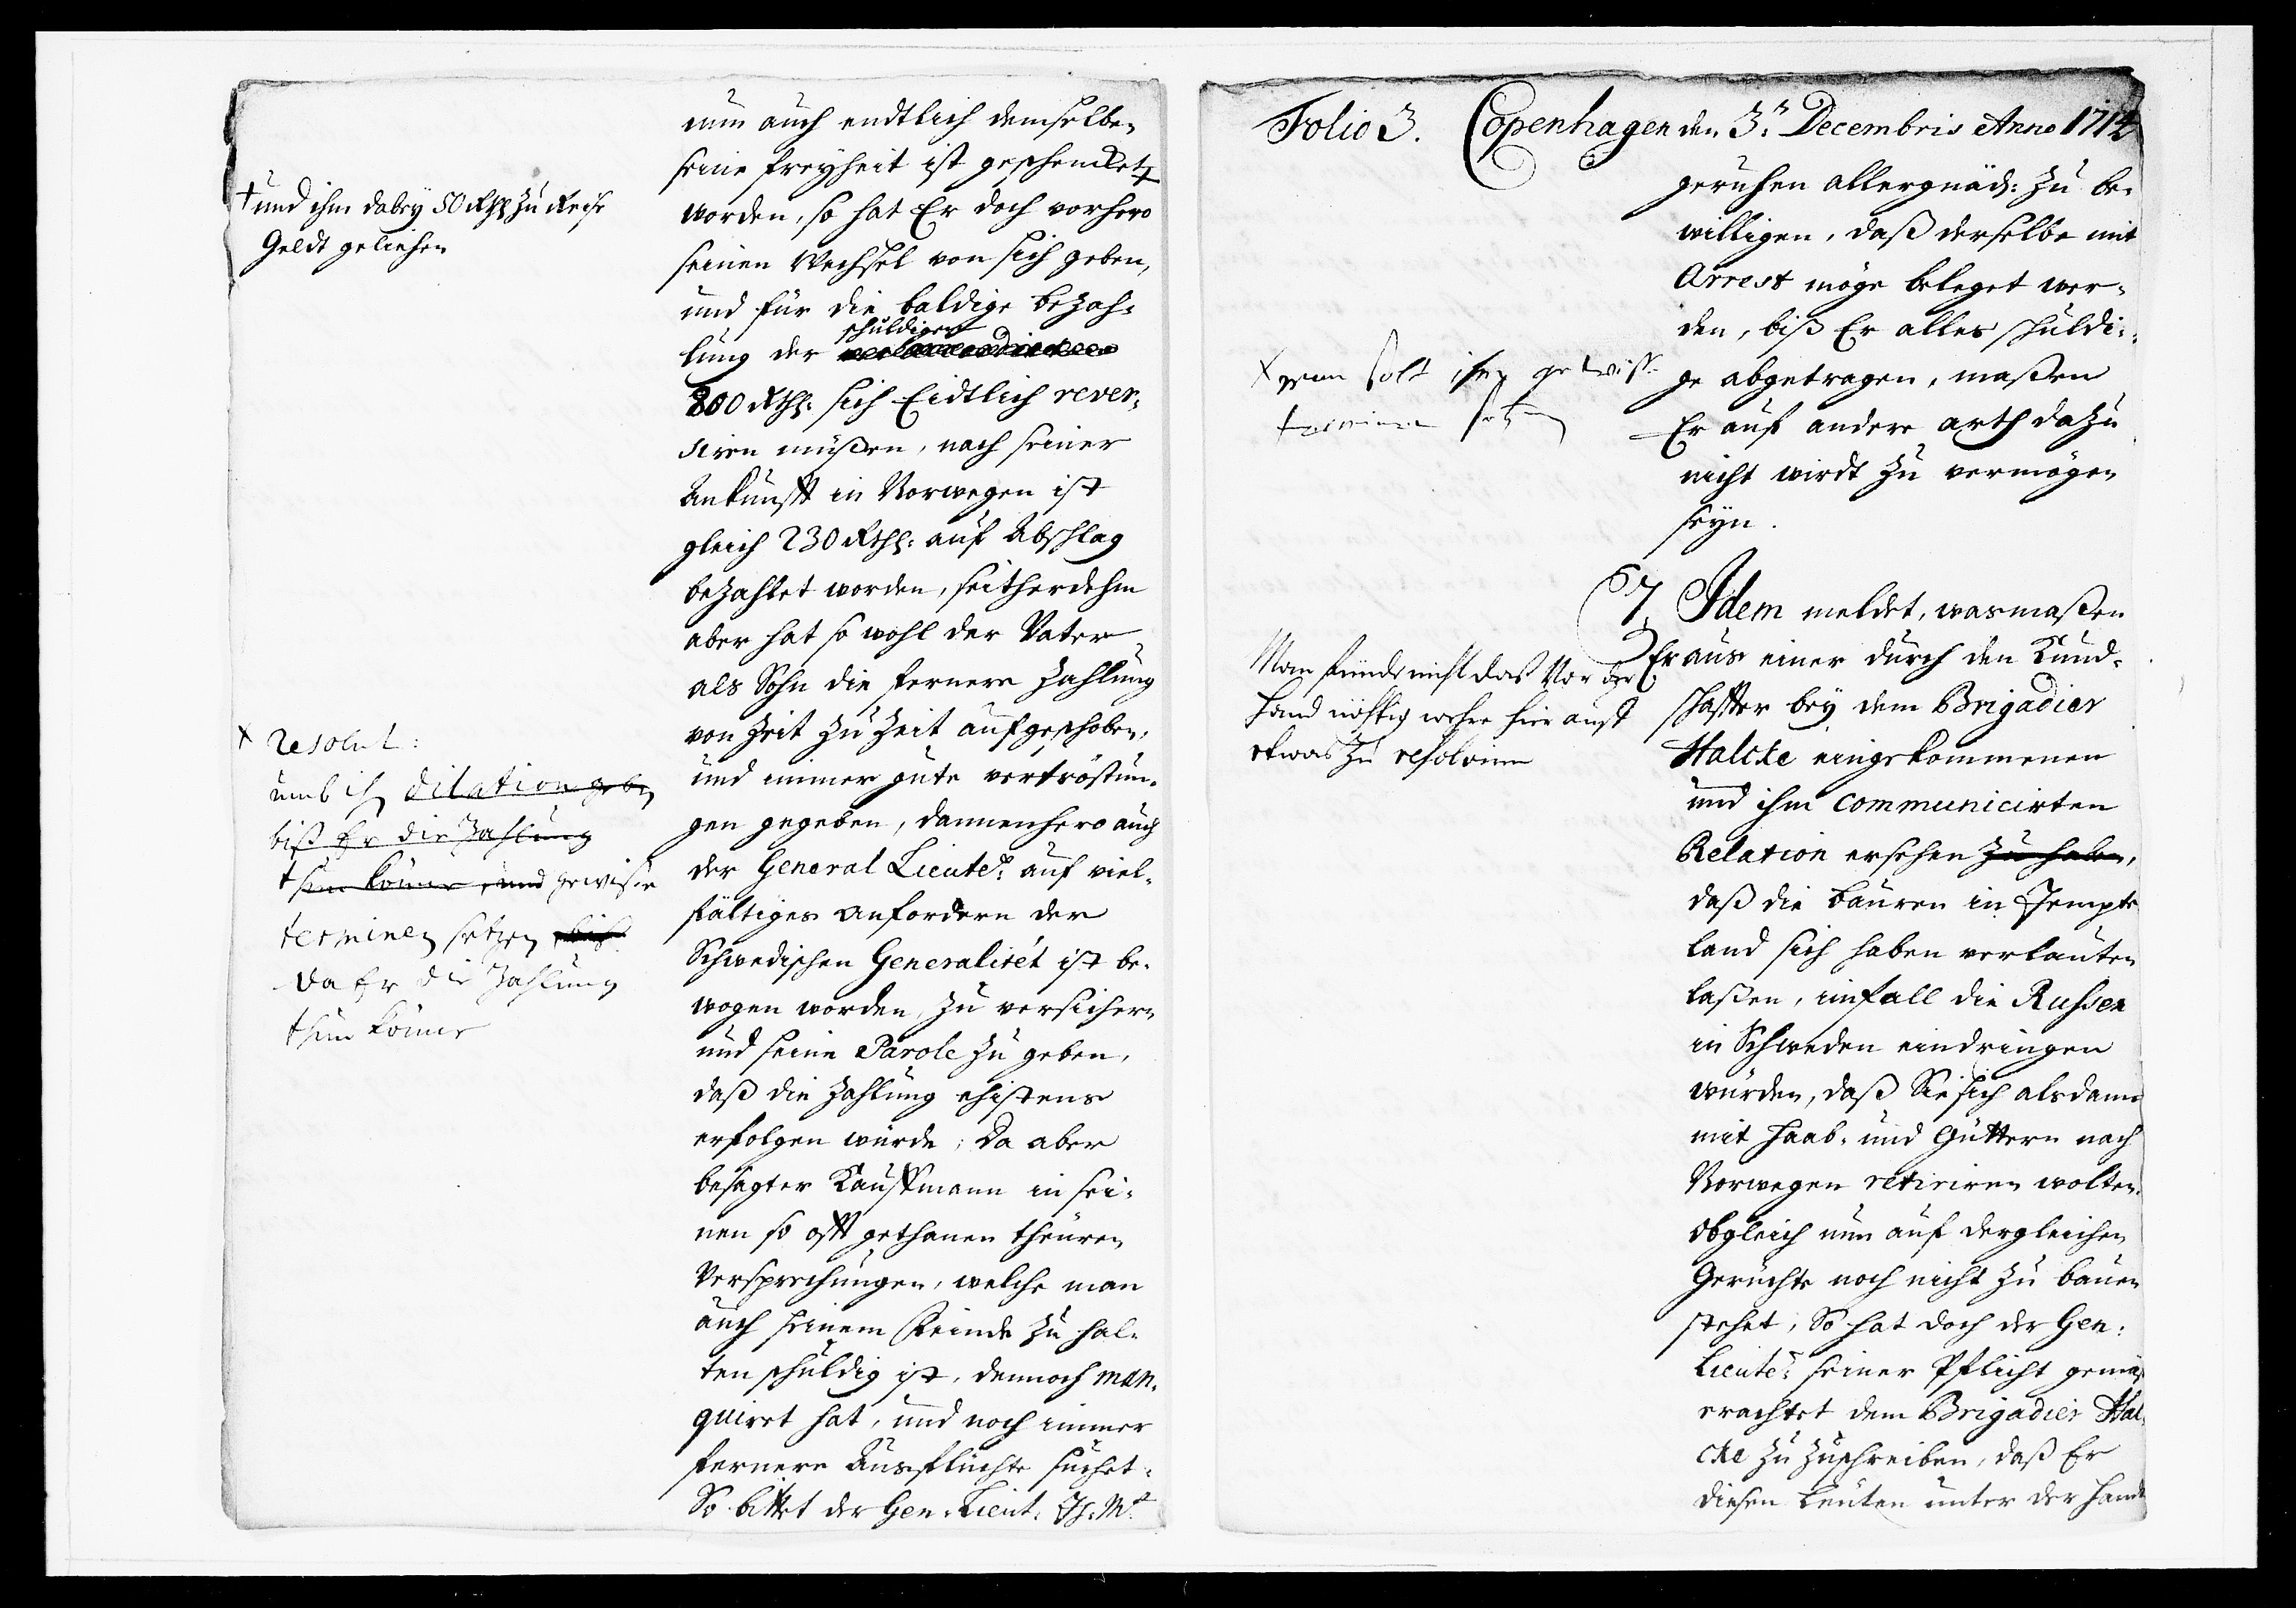 nun auch endtlich demselben
seine freyheit ist geschencket +
worden, so hat Er doch vorhero
seinen Wechsel von sich geben,
und für die baldige bezah=
schuldigen
lung der
800 Rthl: sich Eidtlich rever=
siren müßen, nach seiner
Ankunfft in Norwegen ist
gleich 230 Rthl: auf Abschlag
bezahlet worden, seitherdehm
aber hat so wohl der Vater
als Sohn die fernere Zahlung
von Zeit zu Zeit aufgeschoben,
und immer gute vertröstun=
gen gegeben, dannenhero auch
der General Lieutet: auf viel=
fältiges anfordern der
Schwedischen Generalitét ist be=
wogen worden, zu versichern
und seine Parole zu geben,
daß die Zahlung ehistens
erfolgen würde; Da aber
besagter Kauffmann in sei=
nen so offt gethanen theuren
Versprechungen, welche man
auch seinem Feinde zu hal=
ten schuldig ist, dennoch man=
quiret hat, und noch immer
fernere Ausflüchte suchet.
So bittet der Gen. Lieut. Ih: Mt
† und ihm dabey 50 Rthl zu Reise
Geldt geliehen
+ Resolut:
umb ihm dilation geben
biß Er die Zahlung
thun könne, und gewiße
terminen setzen
da Er die Zahlung
thun könne
Folio 3. Copenhagen den 3.n Decembris Anno 1714
geruhen allergnäds: zu be=
willigen, daß derselbe mit
Arrest möge beleget wer=
den, biß Er alles schuldi=
ge abgetragen, maßen
Er auf andere arth dazu
nicht wirdt zu vermögen
seyn.
+ man solt ihm gewiße
terminen setzen
7. Idem meldet, wasmaßen
Er aus einer durch den Kund=
schaffter bey dem Brigadier
Halcke eingekommenen
und ihm communicirten
Relation ersehen zu haben,
daß die bauren in Jempte
land sich haben verlauten
laßen, imfall die Russen
in Schweden eindringen
würden, daß Sie sich alsdann
mit Haab= und Güttern nach
Norwegen retiriren wolten.
Obgleich nun auf dergleichen
Gerüchte noch nicht zu bauen
stehet, So hat doch der Gen:
Lieutet: seiner Pflicht gemäß
erachtet dem Brigadier Hal=
cke zu zuschreiben, daß Er
diesen Leuten unter der Handt
Man finde nicht das Vor der
Hand nöhtig wehre hier auf
etwas zu resolviren